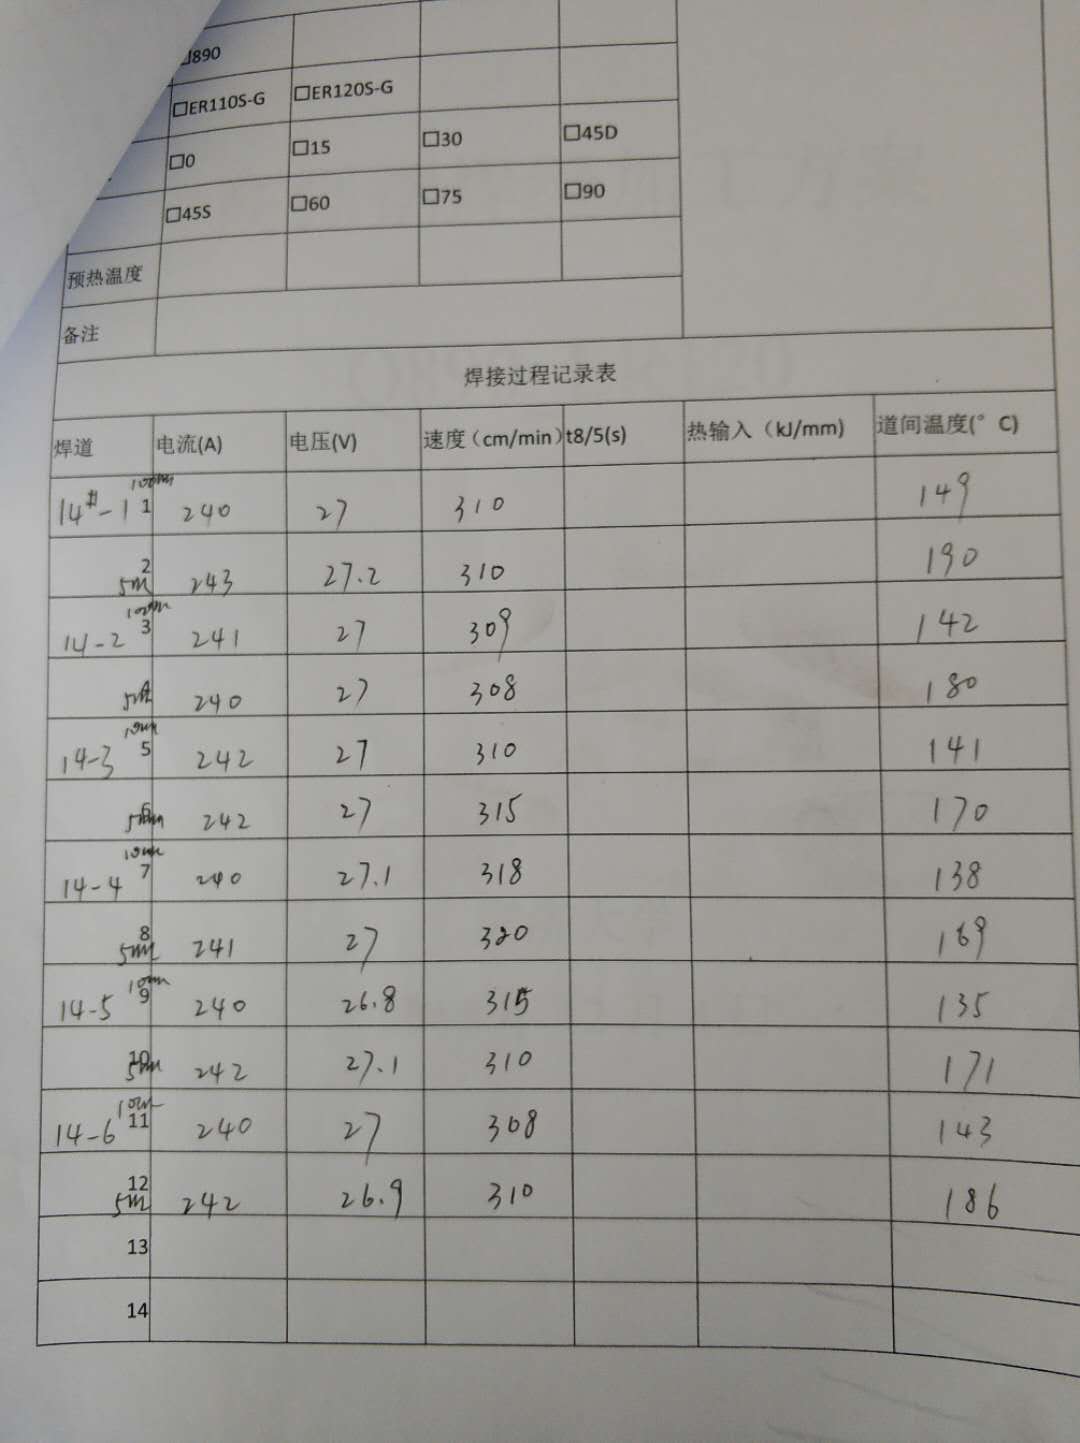 □890
□ER110S-G □ER120S-G
□0 □15 □30 □45D
□45S □60 □75 □90
预热温度
备注
焊接过程记录表
焊道 电流(A) 电压(V) 速度（cm/min) t8/5(s) 热输入（kJ/mm) 道间温度(° C)
14#-1 1 240 27 310 149
2 5m 243 27.2 310 190
14-2 3 241 27 309 142
240 27 308 180
14-3 5 242 27 310 141
6 242 27 315 170
14-4 7 240 27.1 318 138
8 241 27 320 169
14-5 9 240 26.8 315 135
10 242 27.1 310 171
14-6 11 240 27 308 143
12 5m 242 26.9 310 186
13
14